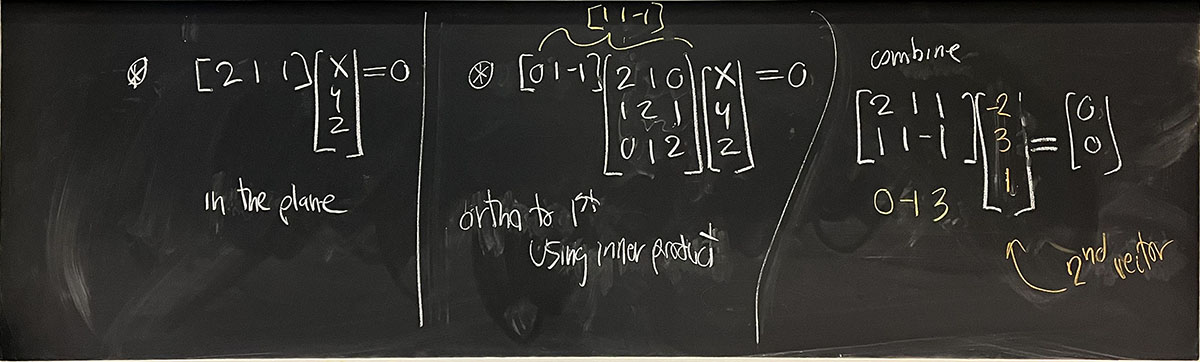 ⊛ [2 1 1] [x y z] = 0
in the plane
[1 1 -1]
⊛ [0 1 -1] [2 1 0
1 2 1
0 1 2] [x y z] = 0
ortho to 1st
using inner product
combine
[2 1 1
1 1 -1] [-2 3 1] = [0 0]
0 -1 3
2nd vector